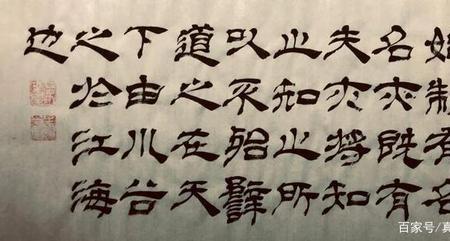 始制有名
名亦既有
夫亦將知
止知止所
以不殆譬
道之在天
下由川谷
之於江海
也
百家号/真